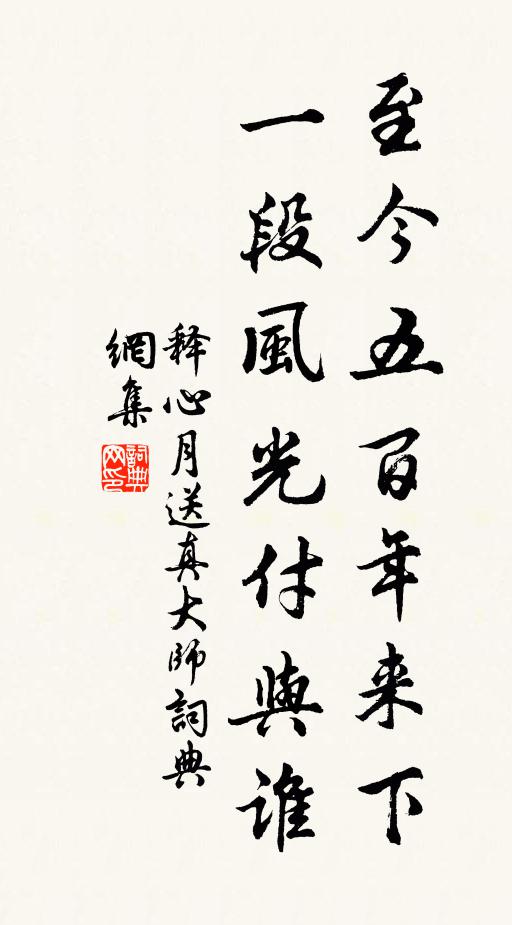 至今五百年来下
一段風光付與誰
释心月送真大師詞典
網集
詞典
网印